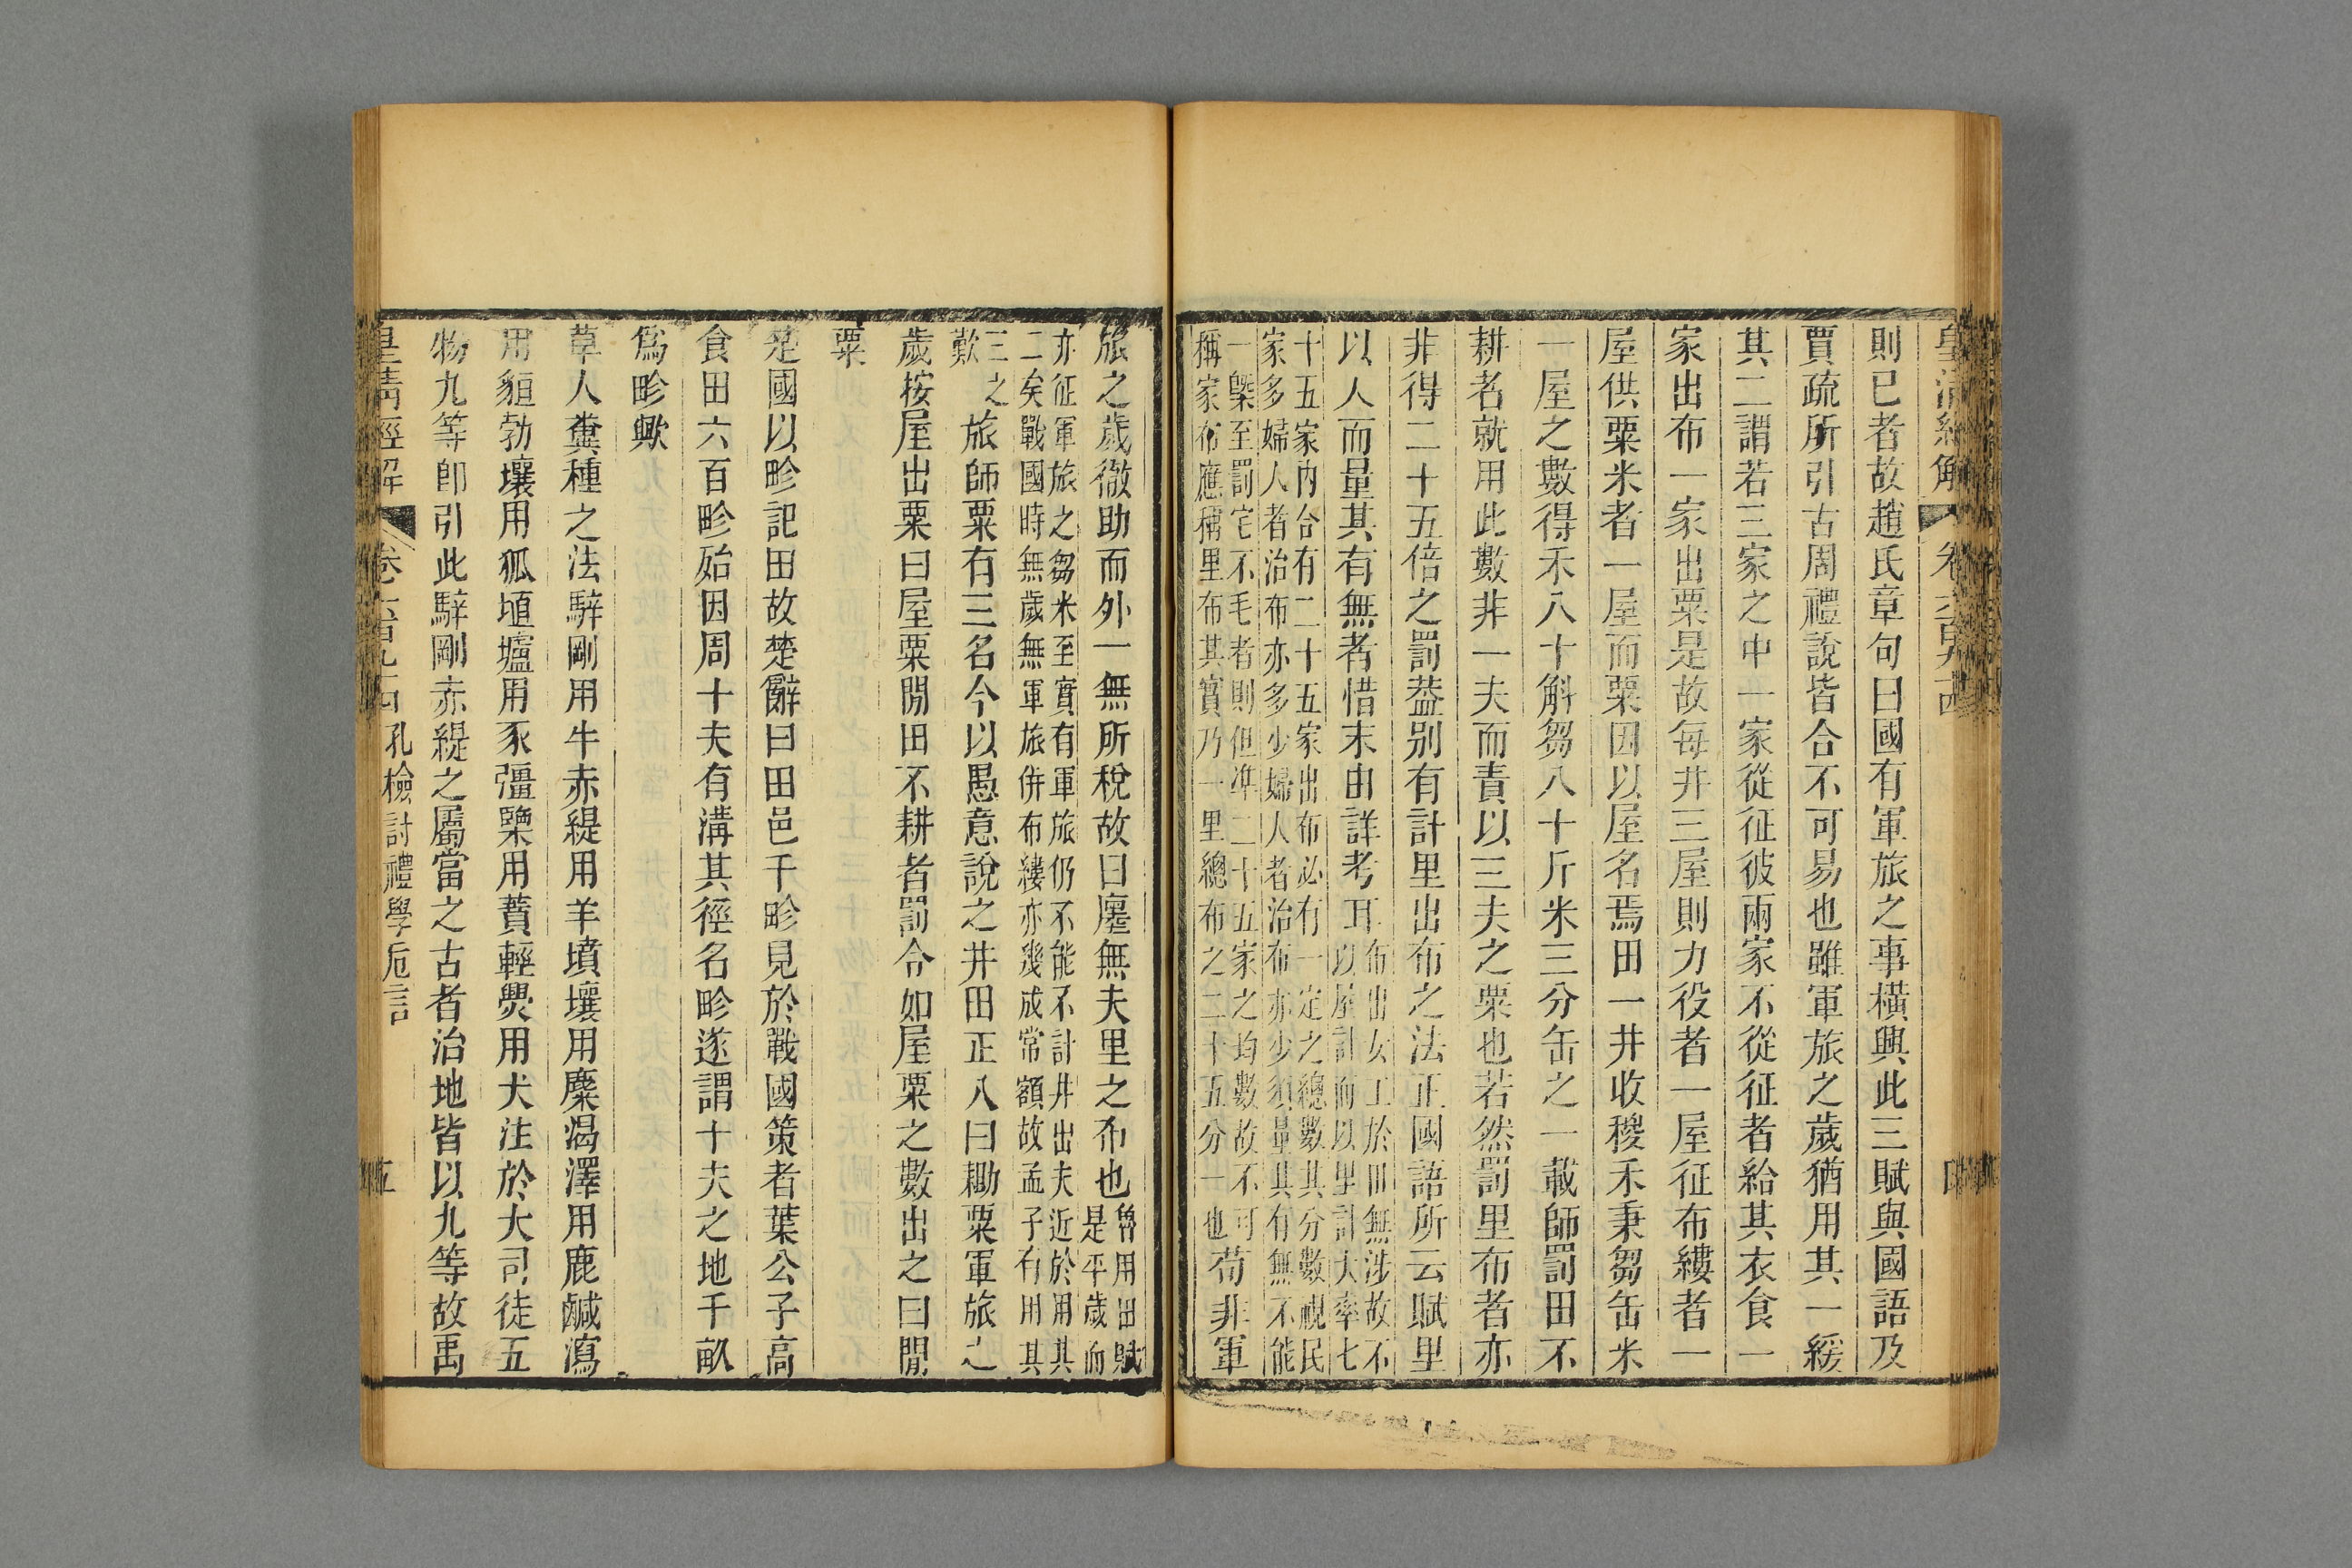 皇清經解
卷六百九十四
則已者故趙氏章句曰國有軍旅之事橫興此三賦與國語及
賈疏所引古周禮說皆合不可易也雖軍旅之歲猶用其一緩
其二謂若三家之中一家從征彼兩家不從征者給其衣食一
家出布一家出粟是故每井三屋則力役者一屋征布縷者一
屋供粟米者一屋而粟因以屋名焉田一井收稯禾秉芻缶米
一屋之數得禾八十斛芻八十斤米三分缶之一載師罰田不
耕者就用此數非一夫而責以三夫之粟也若然罰里布者亦
非得二十五倍之罰葢別有計里出布之法正國語所云賦里
以人而量其有無者惜末由詳考耳布出女工於田無涉故不
以屋計而以里計大率七
十五家內合有二十五家出布必有一定之總數其分數視民
家多婦人者治布亦多少婦人者治布亦少須量其有無不能
一槩至罰宅不毛者則但準二十五家之均數故不可
稱家布應稱里布其實乃一里總布之二十五分一也苟非軍
旅之歲徹助而外一無所稅故曰廛無夫里之布也魯用田賦
是平歲而
亦征軍旅之芻米至實有軍旅仍不能不計井出夫近於用其
二矣戰國時無歲無軍旅併布縷亦幾成常額故孟子有用其
三之
歎旅師粟有三名今以愚意說之井田正入曰耡粟軍旅之
歲按屋出粟曰屋粟閒田不耕者罰令如屋粟之數出之曰閒
粟
楚國以畛記田故楚辭曰田邑千畛見於戰國策者葉公子高
食田六百畛殆因周十夫有溝其徑名畛遂謂十夫之地千畝
爲畛歟
草人糞種之法騂剛用牛赤緹用羊墳壤用麋渴澤用鹿鹹瀉
用貆勃壤用狐埴壚用豕彊㯺用蕡輕㷱用犬注於大司徒五
物九等卽引此騂剛赤緹之屬當之古者治地皆以九等故禹
皇清經解
卷六百九十四
孔檢討禮學卮言
五